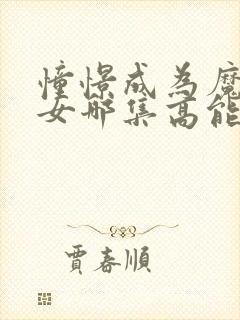 憧憬成為魔
女哪集高能
賈春順